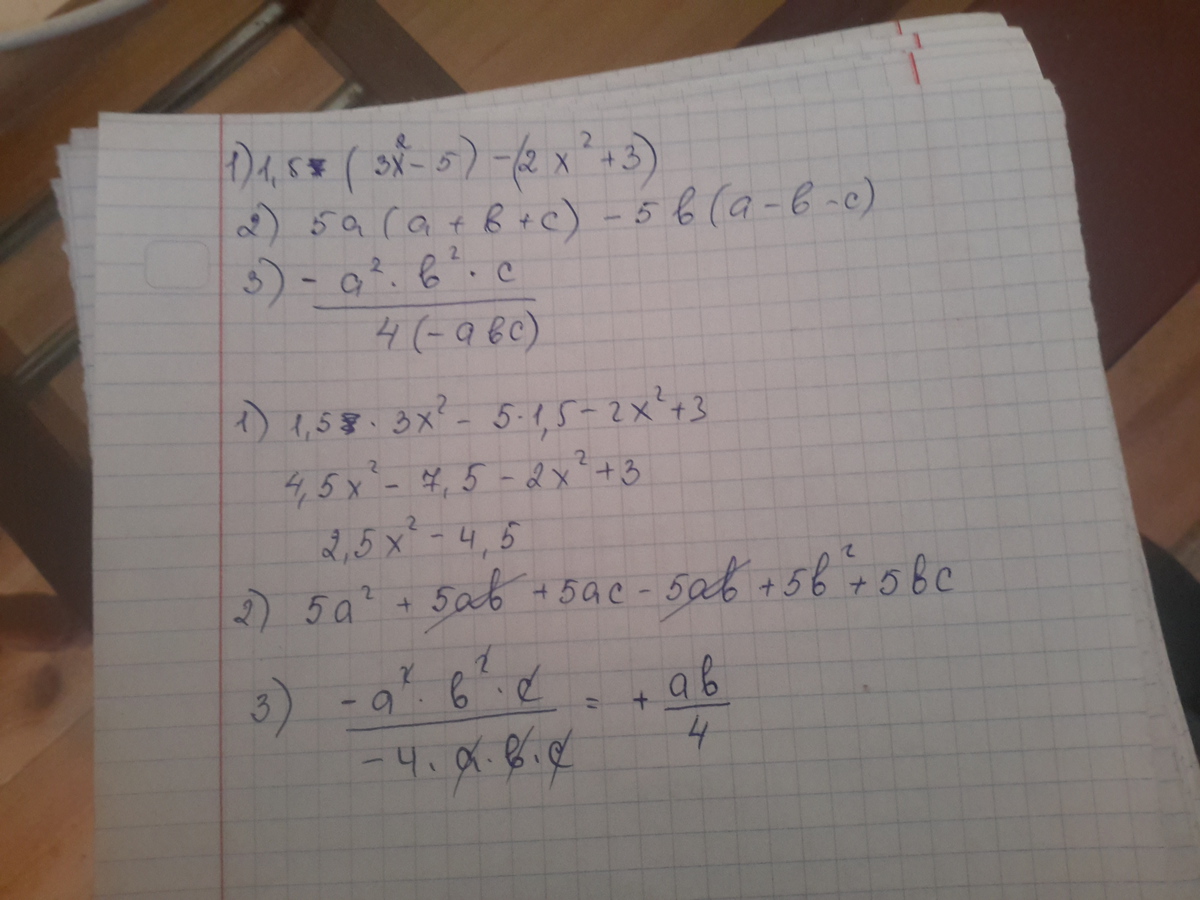 1) 1,5 (3x² - 5) - (2x² + 3)
2) 5a (a + в + c) - 5в (a - в - c)
3) - a² · в² · c
4 (- aвc)
1) 1,5 · 3x² - 5·1,5 - 2x² + 3
4,5x² - 7,5 - 2x² + 3
2,5x² - 4,5
2) 5a² + 5aв + 5ac - 5aв + 5в² + 5вc
3) -a² · в² · c = + aв
-4 · a · в · c 4